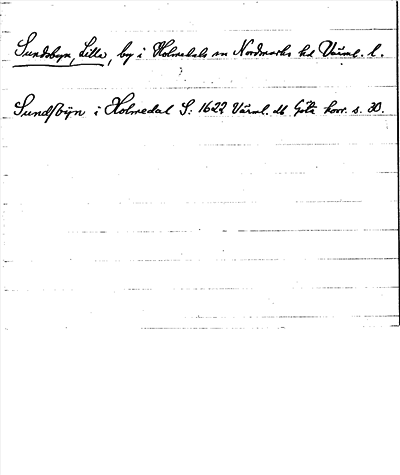 Sundsbyn, Lilla, by i Holmedals sn Nordmarks hd Värml. l.
Sundsbÿn i Holmedal S: 1622 Värml. db Göta hovr. s. 30.